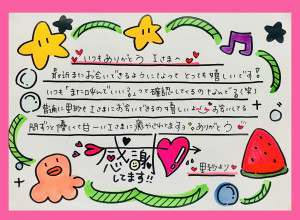 いつもありがとう Iさまへ
最近まにお会いできるようになって とっても嬉しいです
いつも「また呼んでいいる」って確認してくるの なんでる(笑)
普通に里紗も Iさまにお会いできるの嬉しいよ お会いしてる
間ずっと優しくて甘ーいIさまに癒やされてます ありがとう
感謝
してます!!
里紗より